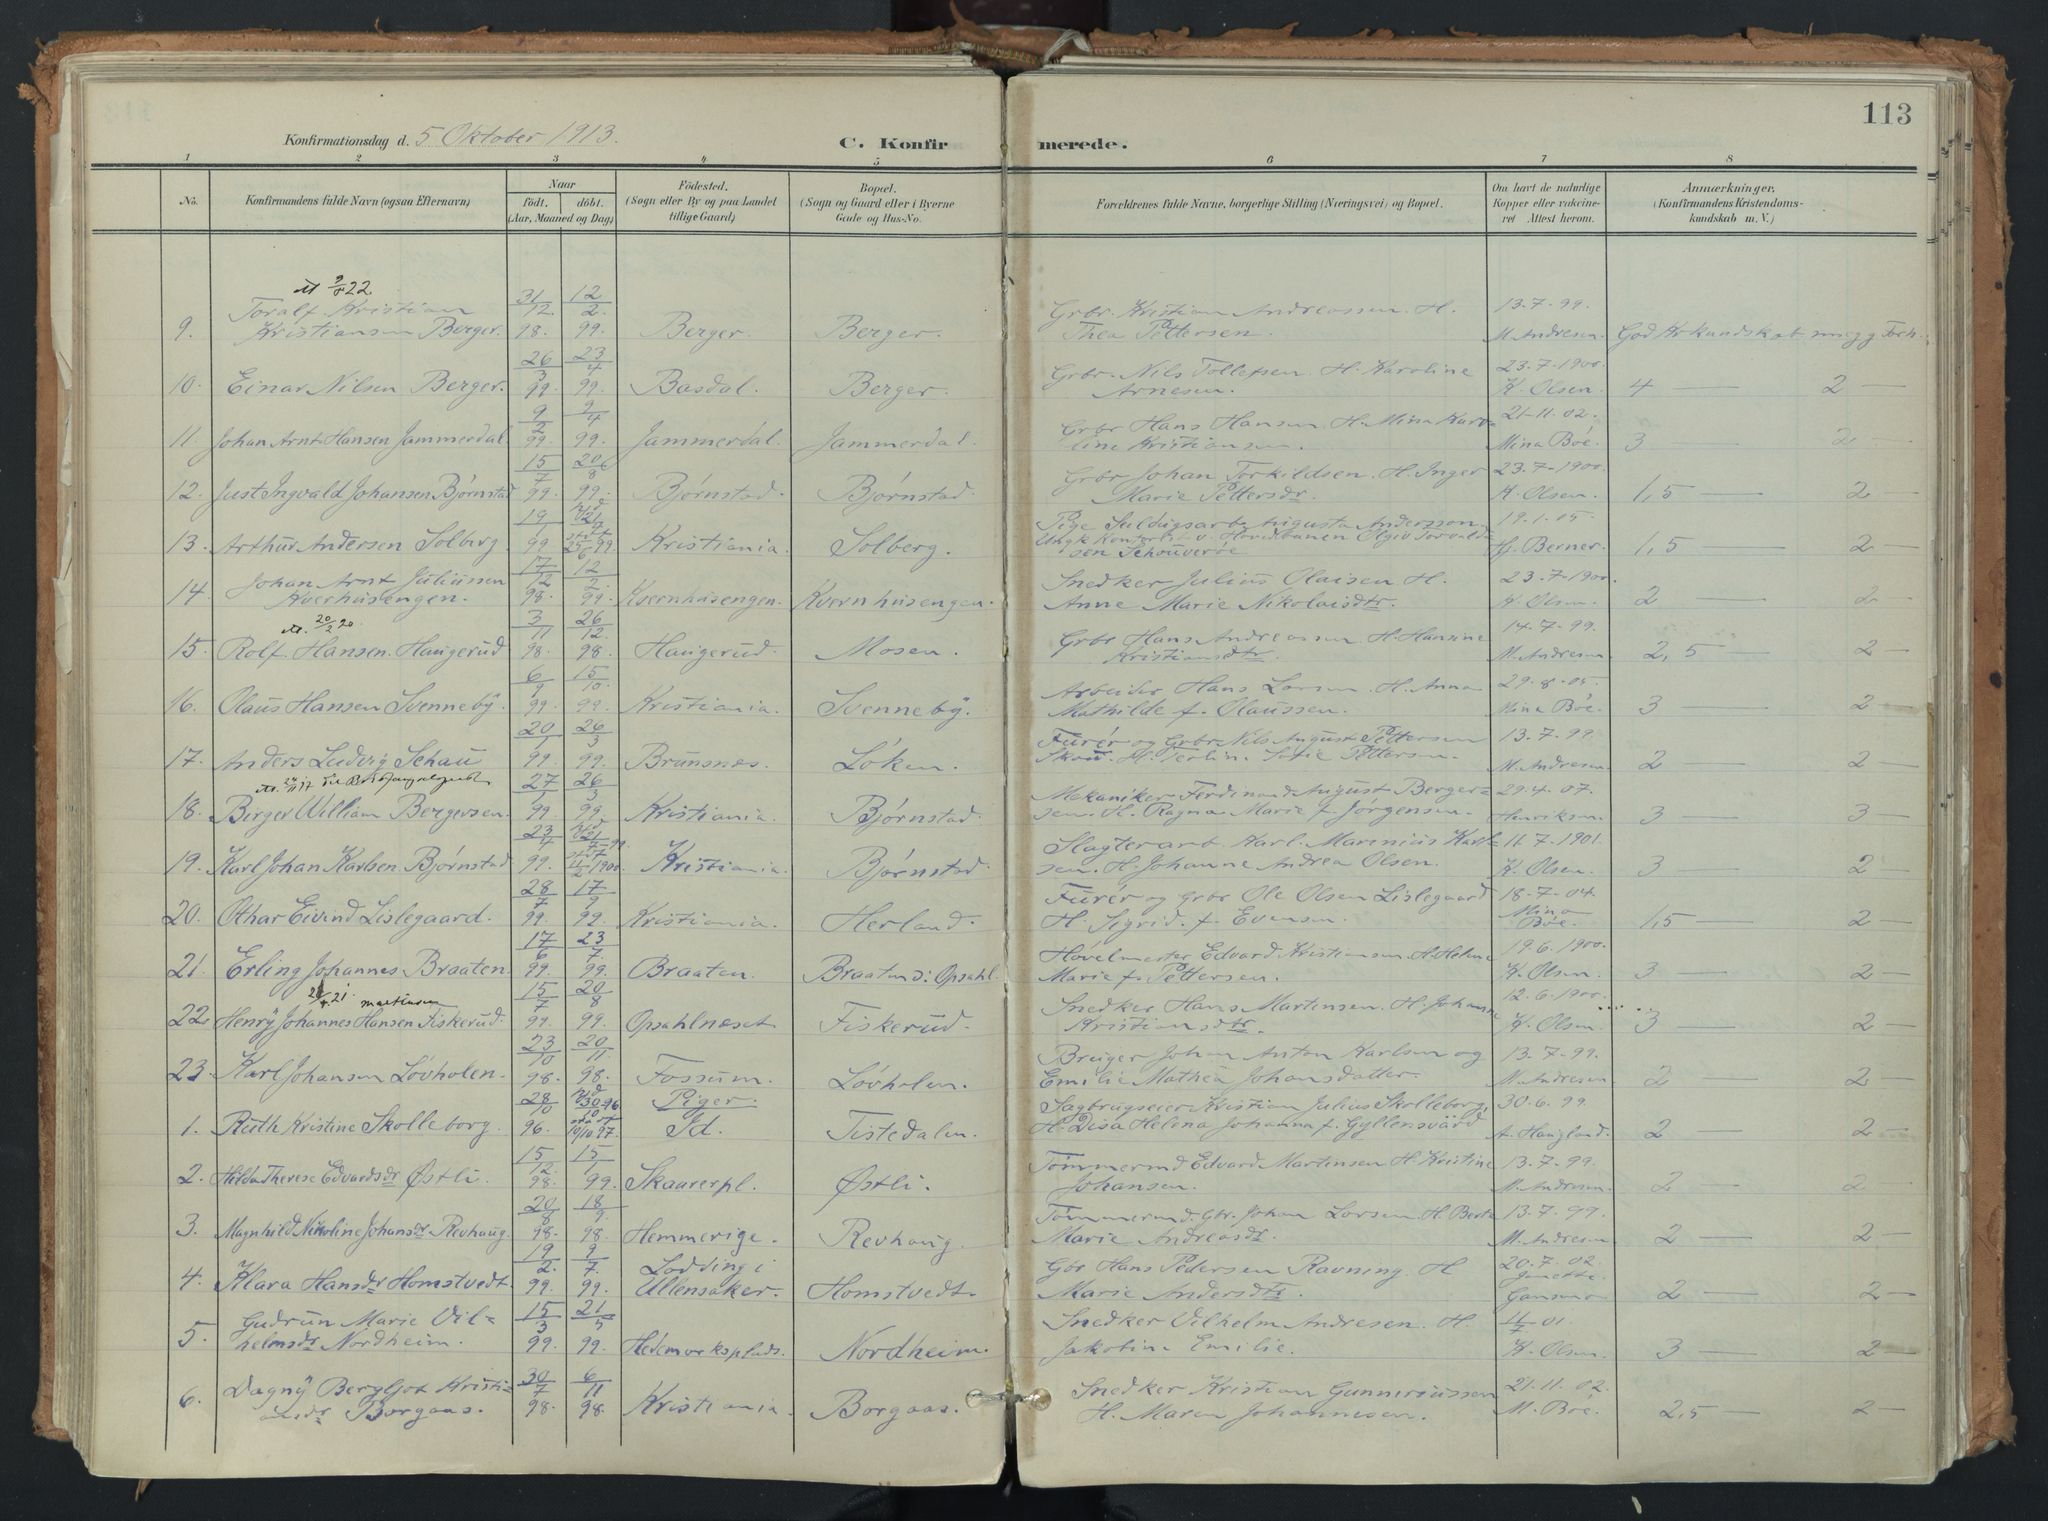 113
Konfirmationsdag d. 5 Oktober 1913.
C. Konfirmerede.
1 2 3 4 5 6 7 8
No.
Konfirmandens fulde Navn (ogsaa Efternavn)
Naar
født. døbt.
(Aar, Maaned og Dag)
Födested.
(Sogn eller By og paa Landet
tillige Gaard)
Bopæl.
(Sogn og Gaard eller i Byerne
Gade og Hus-No.
Forældrenes fulde Navne, borgerlige Stilling (Næringsvei) og Bopæl.
Om havt de naturlige
Kopper eller vakcine-
ret Attest herom.
Anmærkninger.
(Konfirmandens Kristendoms-
kundskab m. V.)
Toralf Kristian 31/12 12/2 Grbr. Kristian Andreassen H. 13.7.99.
9. Kristiansen Berger. 98. 99. Berger. Berger. Thea Pettersen. M. Andresen God Kr kundskab
26/3 23/4 Grbr. Nils Tollefsen. H. Karoline 23.7.1900.
10. Einar Nilsen Berger. 99. 99. Basdal. Berger. Arnesen. K. Olsen. 4 — 2 —
9/2 9/4 Grbr Hans Hansen H. Mina Karo- 21-11.02.
11. Johan Arnt Hansen Jammerdal. 99. 99. Jammerdal. Jammerdal. line Kristiansen. Mina Böe. 3 — 2 —
15/7 20/8 Grbr Johan Torkildsen. H. Inger 23.7-1900.
12. Just Ingvald Johansen Bjørnstad 99. 99. Bjørnstad. Bjørnstad. Marie Pettersdr. K. Olsen. 1,5 — 2 —
19/1 Pige Augusta Andersson. 19.1.05.
13. Arthur Andersen Solberg 99 25/6 99 Kristiania. Solberg. H. Berner. 1,5 — 2 —
Johan Arnt Juliussen 17/12 12/2 Snedker Julius Olaisen H. 23.7-1900.
14. Kverhusengen. 98. 99. Kvernhusengen. Kvernhusengen. Anne Marie Nikolaisdtr. K. Olsen 2 — 2 —
20/2 20 3/11 26/12 Grbr Hans Andreassen. H. Hansine 14.7-99.
15. Rolf. Hansen. Haugerud 98. 98. Haugerud. Mosen. Kristiansdtr. M. Andresen. 2,5 — 2 —
6/9 15/10 Arbeider Hans Larsen. H. Anna 29.8.05.
16. Olaus Hansen Svenneby. 99. 99. Kristiania. Svenneby. Mathilde f. Olaussen. Mina Böe. 3 — 2 —
20/1 26/3 Furér og Grbr. Nils August Pettersen 13.7.99.
17. Anders Ludvig Schau 99. 99. Brunsnes. Løken. M. Andresen. 2 — 2 —
27/1 26/3 Mekaniker Ferdinand August Berger- 29.4.07.
18. Birger William Bergersen. 99 99. Kristiania. Bjørnstad. sen. H. Ragna Marie f. Jørgensen. Henriksen. 3 — 3 —
23/4 Slagterarb. Karl Marinius Karl- 11.7.1901.
19. Karl Johan Karlsen Bjørnstad 99. 11/2 1900. Kristiania. Bjørnstad. sen. H. Johanne Andrea Olsen. K. Olsen. 3 — 2 —
28/7 17/9 Furér og Grbr Ole Olsen Lislegaard 18.7.04.
20. Othar Eivind Lislegaard. 99. 99. Kristiania. Herland. H. Sigrid. f. Evensen. Mina Böe. 1,5 — 2 —
17/6 23/7 Høvelmester Edvard Kristiansen. H. Helene 19.6.1900.
21. Erling Johannes Braaten. 99. 99. Braaten. Braaten : Opsahl. Marie f. Pettersen. K. Olsen. 3 — 2 —
martinsen 15/7 20/8 Snedker Hans Martinsen. H. Johanne 12.6.1900.
22. Henry Johannes Hansen Fiskerud. 99. 99. Opsahlneset. Fiskerud. Kristiansdtr. K. Olsen. 3 — 2 —
23/10 20/11 Johan Anton Karlsen og 13.7.99.
23. Karl Johansen Løvholen. 98. 98. Fossum. Løvholen. Emilie Mathea Johansdatter. M. Andresen 2 — 2 —
Piger.
28/10 30/10 96 Sagbrugseier Kristian Julius Skolleborg. 30.6.99.
1. Ruth Kristine Skolleborg. 96. 10/10 97. Id. Tistedalen. H. Disa Helena Johanna f. Gyllensvärd A. Haugland. 2 — 2 —
15/12 15/1 Tømmermd Edvard Martinsen H. Kristine 13.7.99.
2. Hilda Therese Edvardsdr Østli. 98. 99. Skaarerpl. Østli. Johansen. M. Andresen 2 — 2 —
20/8 18/9 Tømmermd. Gbr. Johan Larsen. H. Berte 13.7.99.
3. Magnhild Nikoline Johansdr Revhaug. 98. 98. Hemmerige. Revhaug. Marie Andreasdr. M. Andresen 2 — 2 —
19/2 9/7 Lødding i Gbr Hans Pedersen Ravning. H. 20.7.02.
4. Klara Hansdr Homstvedt. 99. 99. Ullensaker. Homstvedt. Marie Andersdtr. 2 — 2 —
Gudrun Marie Vil- 15/3 21/5 Snedker Vilhelm Andresen. H. 11/7 01.
5. helmsdr Nordheim. 99. 99. Hedemarksplads. Nordheim. Jakobine Emilie. K. Olsen. 3 — 2 —
Dagny Bergljot Kristi- 30/7 6/11 Snedker Kristian Gunneriussen 21.11.02.
6. ansdr Borgaas. 98. 98. Kristiania. Borgaas. H. Maren Johannesen. M. Böe. 2,5 — 2 —